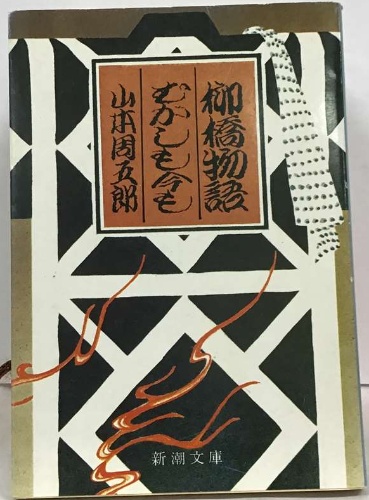 柳橋物語
むかしも今も
山本周五郎
新潮文庫